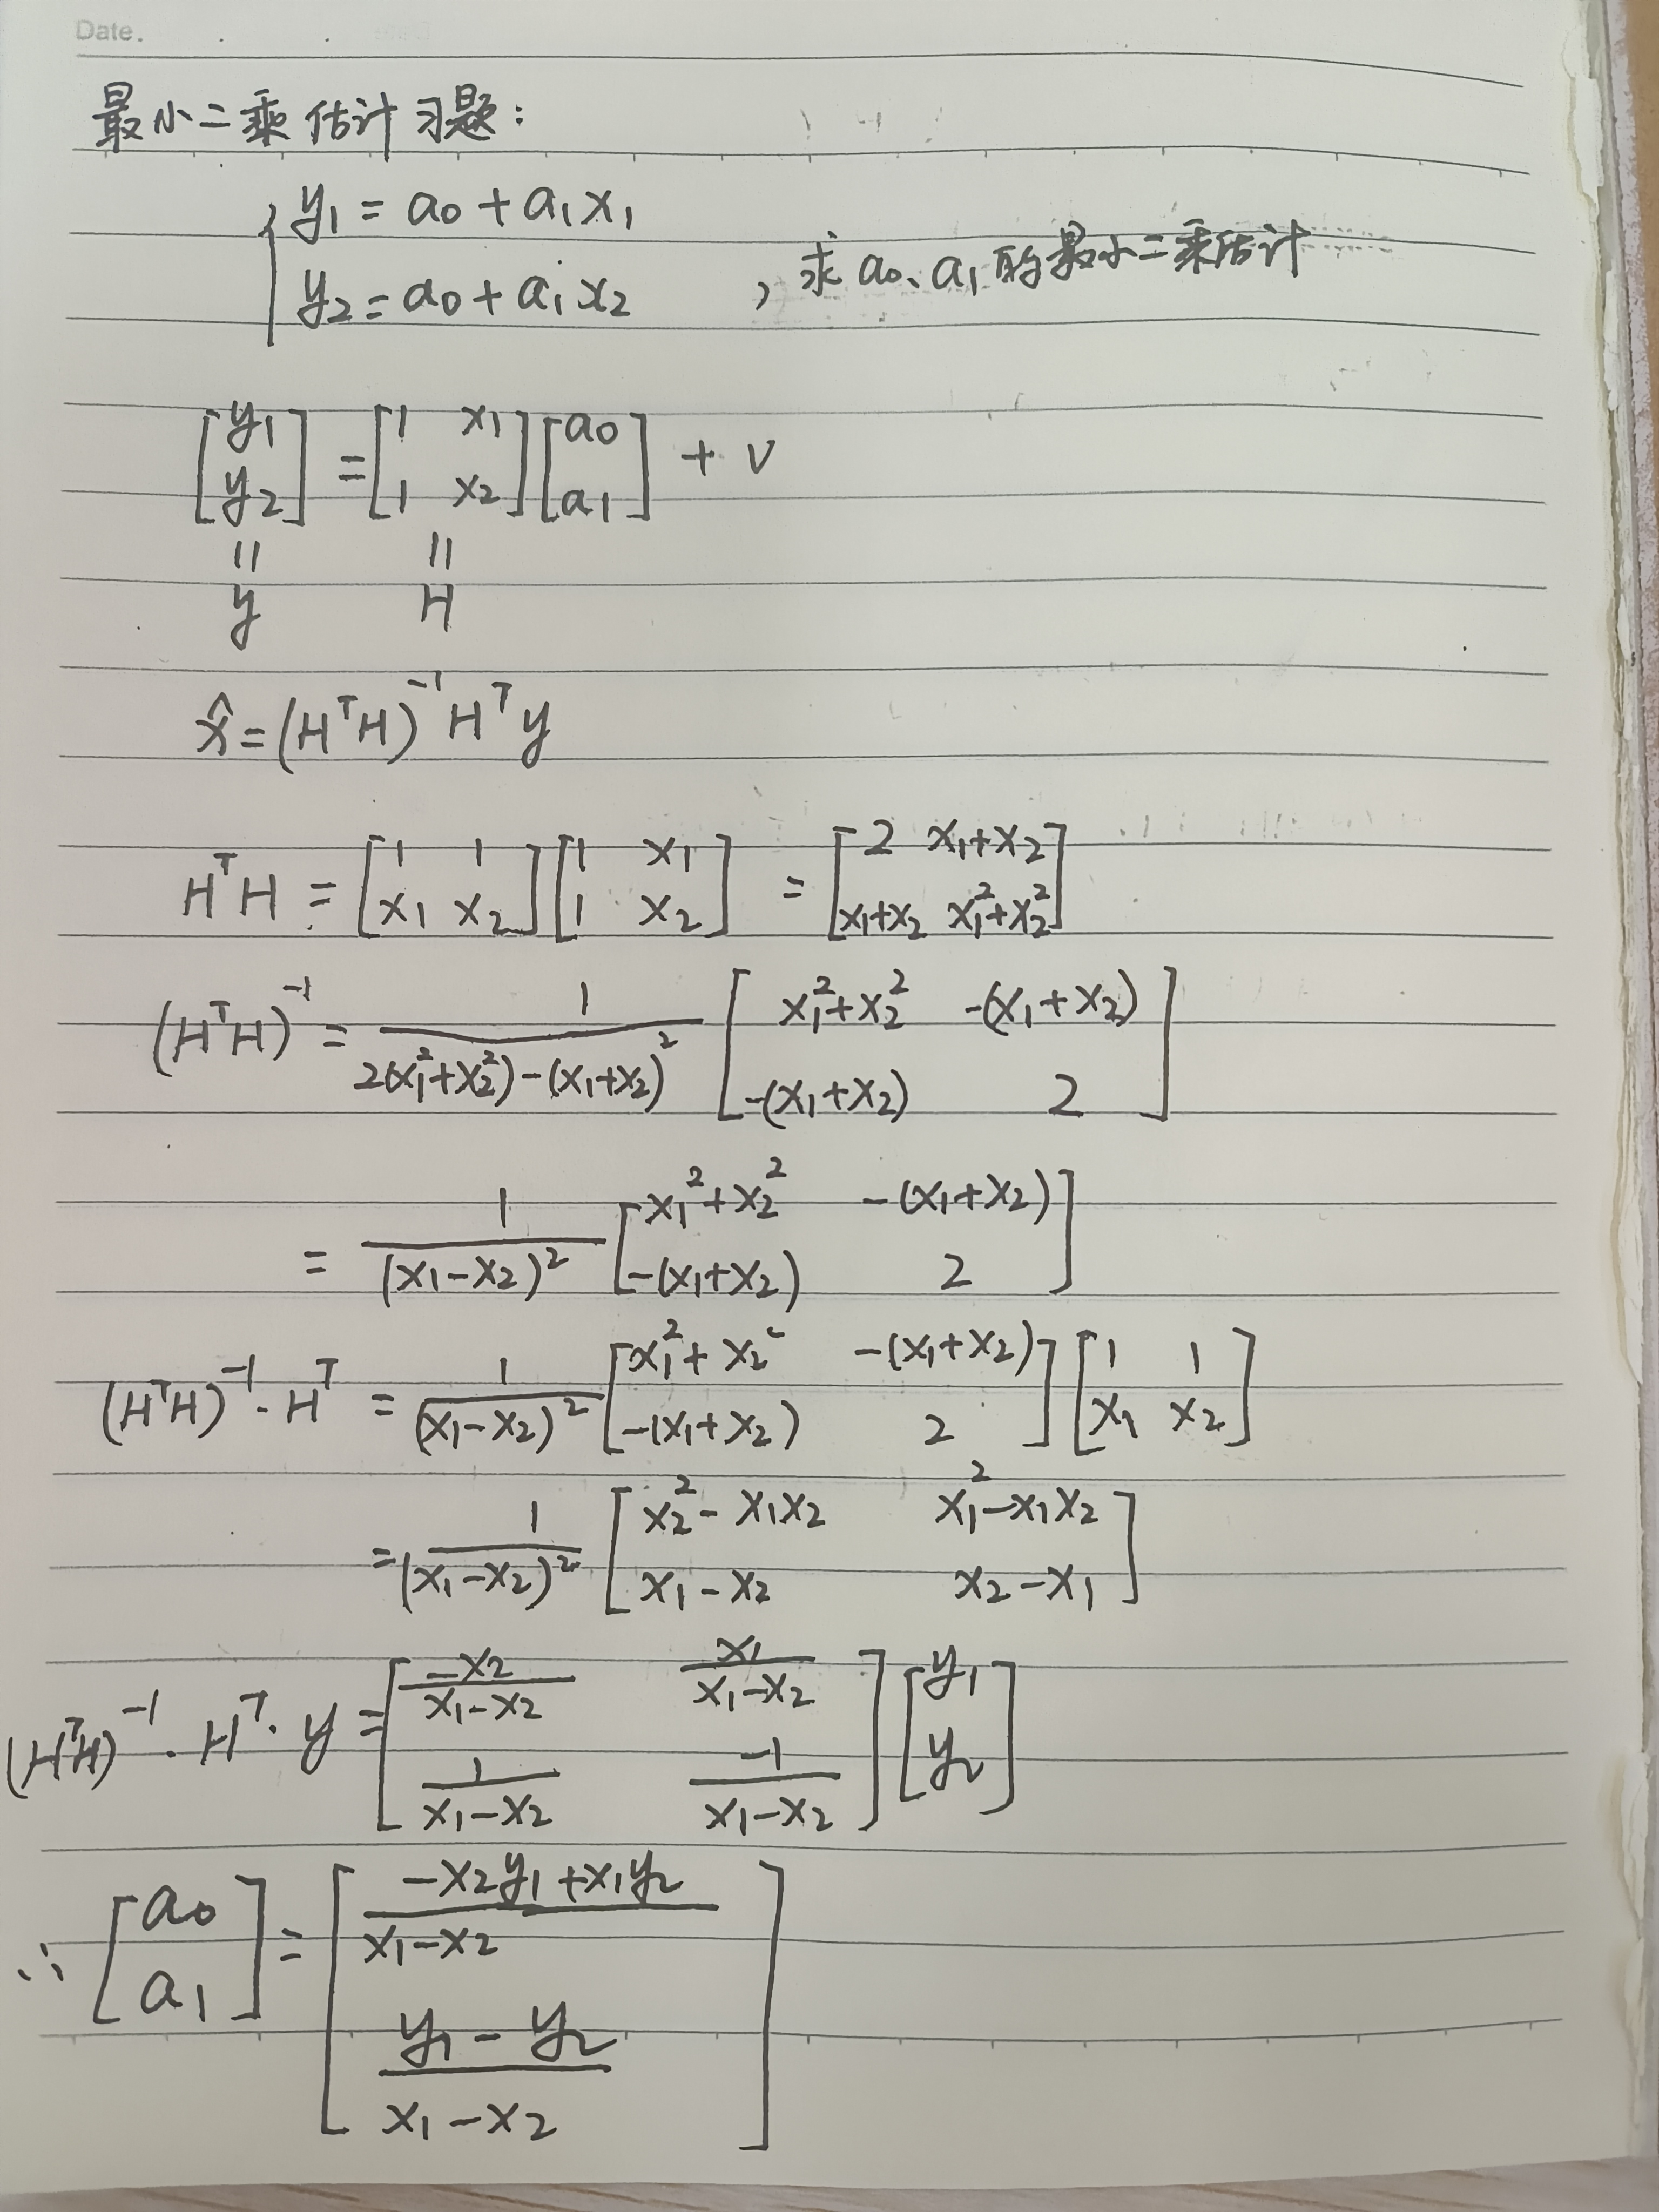 Date.
最小二乘估计习题:
y₁ = a₀ + a₁x₁
y₂ = a₀ + a₁x₂ , 求a₀、a₁的最小二乘估计
[y₁; y₂] = [1 x₁; 1 x₂][a₀; a₁] + v
= =
y H
x̂ = (HᵀH)⁻¹Hᵀy
HᵀH = [1 1; x₁ x₂][1 x₁; 1 x₂] = [2 x₁+x₂; x₁+x₂ x₁²+x₂²]
(HᵀH)⁻¹ = 1/(2(x₁²+x₂²)-(x₁+x₂)²) [x₁²+x₂² -(x₁+x₂); -(x₁+x₂) 2]
= 1/(x₁-x₂)² [x₁²+x₂² -(x₁+x₂); -(x₁+x₂) 2]
(HᵀH)⁻¹·Hᵀ = 1/(x₁-x₂)² [x₁²+x₂² -(x₁+x₂); -(x₁+x₂) 2][1 1; x₁ x₂]
= 1/(x₁-x₂)² [x₂²-x₁x₂ x₁²-x₁x₂; x₁-x₂ x₂-x₁]
(HᵀH)⁻¹·Hᵀ·y = [-x₂/(x₁-x₂) x₁/(x₁-x₂); 1/(x₁-x₂) -1/(x₁-x₂)][y₁; y₂]
∴ [a₀; a₁] = [(-x₂y₁+x₁y₂)/(x₁-x₂); (y₁-y₂)/(x₁-x₂)]